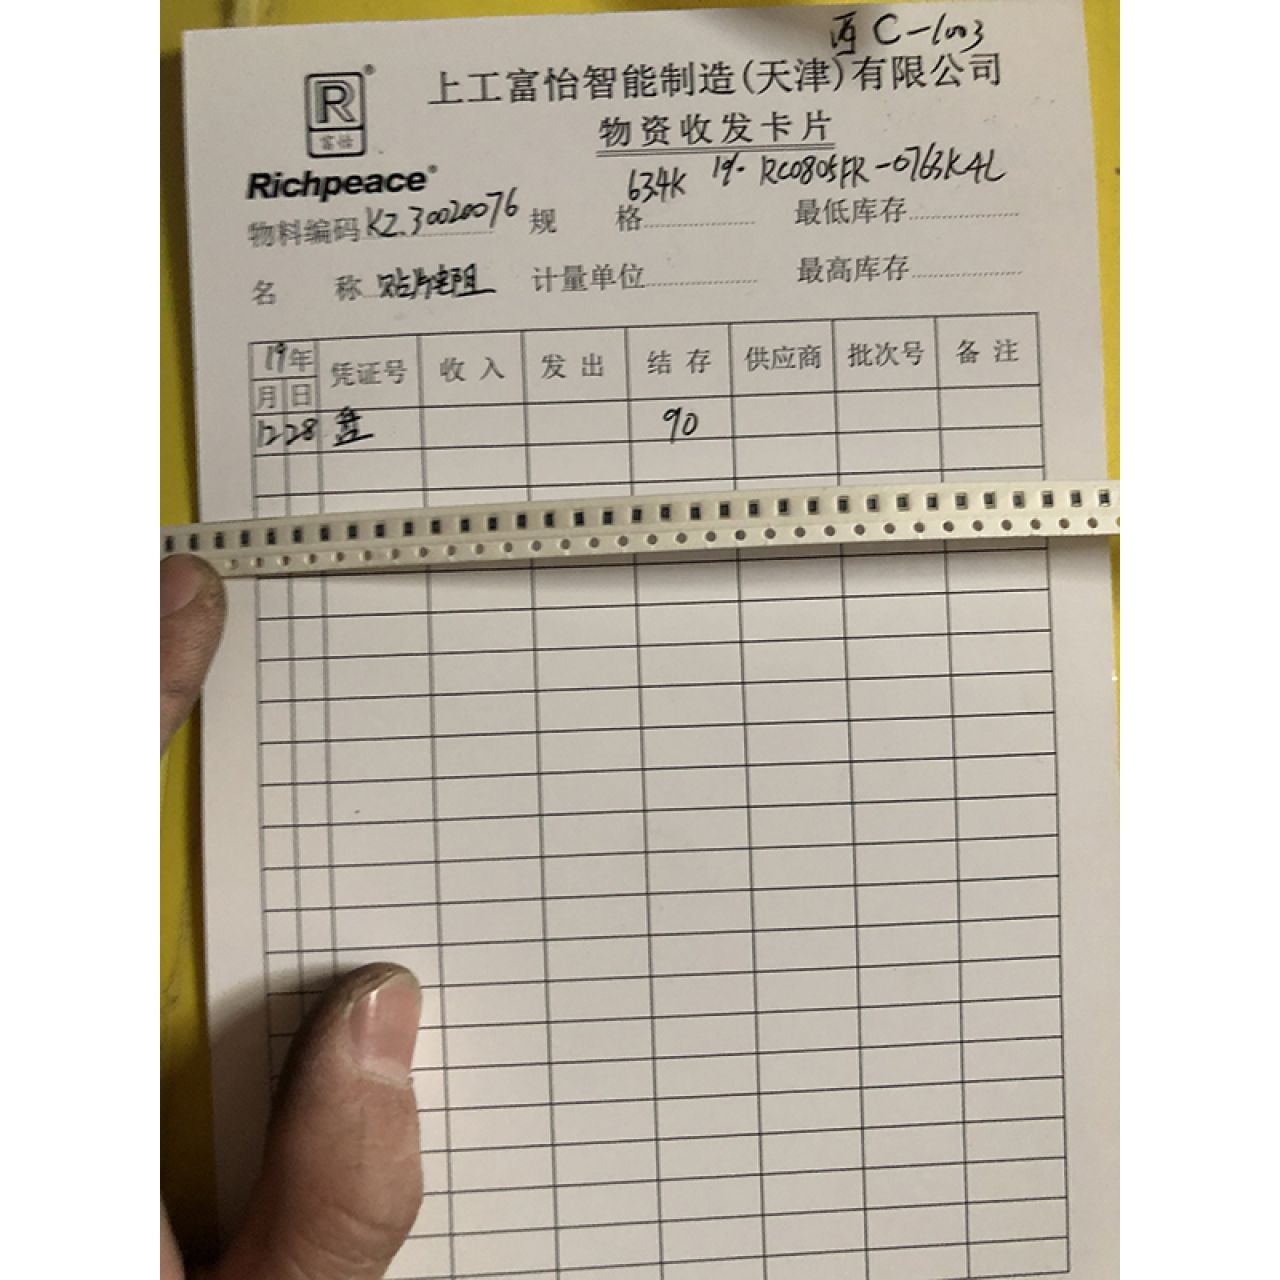 西 C-1003
上工富怡智能制造(天津)有限公司
R®
富怡
物资收发卡片
Richpeace®
634K 1% RC0805FR-0763K4L
物料编码 KZ.30020076 规 格 最低库存
名 称 贴片电阻 计量单位 最高库存
19年 凭证号 收入 发出 结存 供应商 批次号 备注
月 日
12 28 盘 90